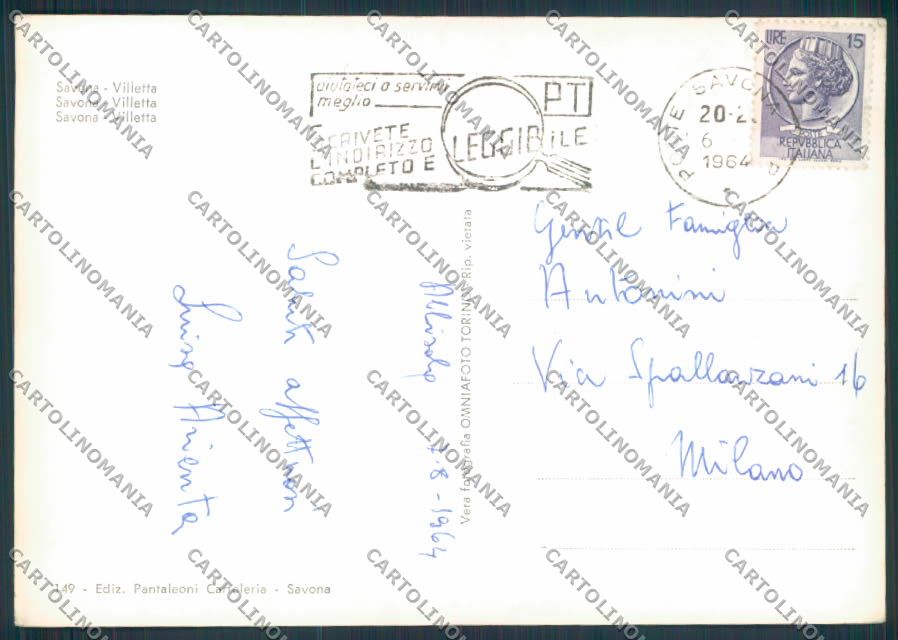 Savona - Villetta
Savona - Villetta
Savona - Villetta
aiutateci a servirvi
meglio
PT
SCRIVETE
L'INDIRIZZO
COMPLETO E
LEGGIBILE
SAVONA
20-2
6
1964
LIRE 15
REPVBBLICA
ITALIANA
Gentil Famiglia
Antonini
Via Spallanzani 16
Milano
Vera fotografia OMNIAFOTO TORINO - Rip. vietata
Albisola 7-8-1964
Saluti affettuosi
Luisa
149 - Ediz. Pantaleoni Cartoleria - Savona
CARTOLINOMANIA